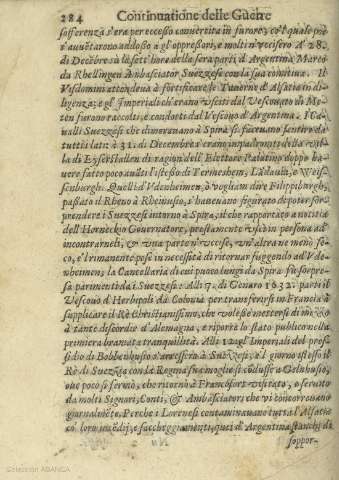 284 Continuatione delle Guerre
sofferenza s'era per eccesso convertita in furore, co'l quale poi
s'auuētarono addosso à gl'oppressori, e molti n'vcisero. A' 28.
di Decēbre sù la sett' hora della sera partì d'Argentina Marco
da Rhellingen Ambasciator Suezzese con la sua comitiua. Il
Visdomini attendeua à fortificare le Tauerne d'Alsatia in di-
ligenza; e gl'Imperiali ch'erano vsciti dal Vescouato di Me-
ten furono raccolti, e condotti dal Vescouo d'Argentina. I Ca-
ualli Suezzesi che dimorauano à Spira si faceuano sentire da
tutti i lati: à 31. di Decembre s'erano impadroniti della vil-
la di Eyserstallen di ragion dell' Elettore Palatino doppo ha-
uere fatto poco auāti l'istesso di Germeshem, Lādauia, e Weis-
senburgh. Quelli d'Vdenheimen, ò vogliam dire Filippiburgh,
passato il Rheno à Rheinhuiso, s'haueuano figurato di poter sor-
prendere i Suezzesi intorno à Spira, il che rapportato à notitia
dell' Horneckio Gouernatore, prestamente vscì in persona ad
incontrarneli, & vna parte n'vccise, vn'altra ne menò se-
co, e'l rimanente pose in necessità di ritornar fuggendo ad Vde-
nheimen; la Cancellaria di cui poco lungi da Spira fù sorpre-
sa parimenti da i Suezzesi: Alli 7. di Genaro 1632. partì il
Vescouo d'Herbipoli da Colonia per transferirsi in Francia à
supplicare il Rè Christianissimo, che volesse mettersi di mezo
à tante discordie d'Alemagna, e riporre lo stato publico nella
primiera bramata tranquillità. Alli 12. gl'Imperiali del pre-
sidio di Bobbenhusio s'arresero à Suezzesi; e'l giorno istesso il
Rè di Suezzia con la Regina sua moglie si cōdusse a Gelnhusio,
oue poco si fermò, che ritornò à Francfort visitato, e seruito
da molti Signori, Conti, & Ambasciatori che vi concorreuano
giornalmēte. Perche i Lorenesi contaminauano tutta l'Alsatia
co' loro incēdij, e saccheggiamenti, quei d'Argentina stanchi di
soppor-
Colección ABANCA